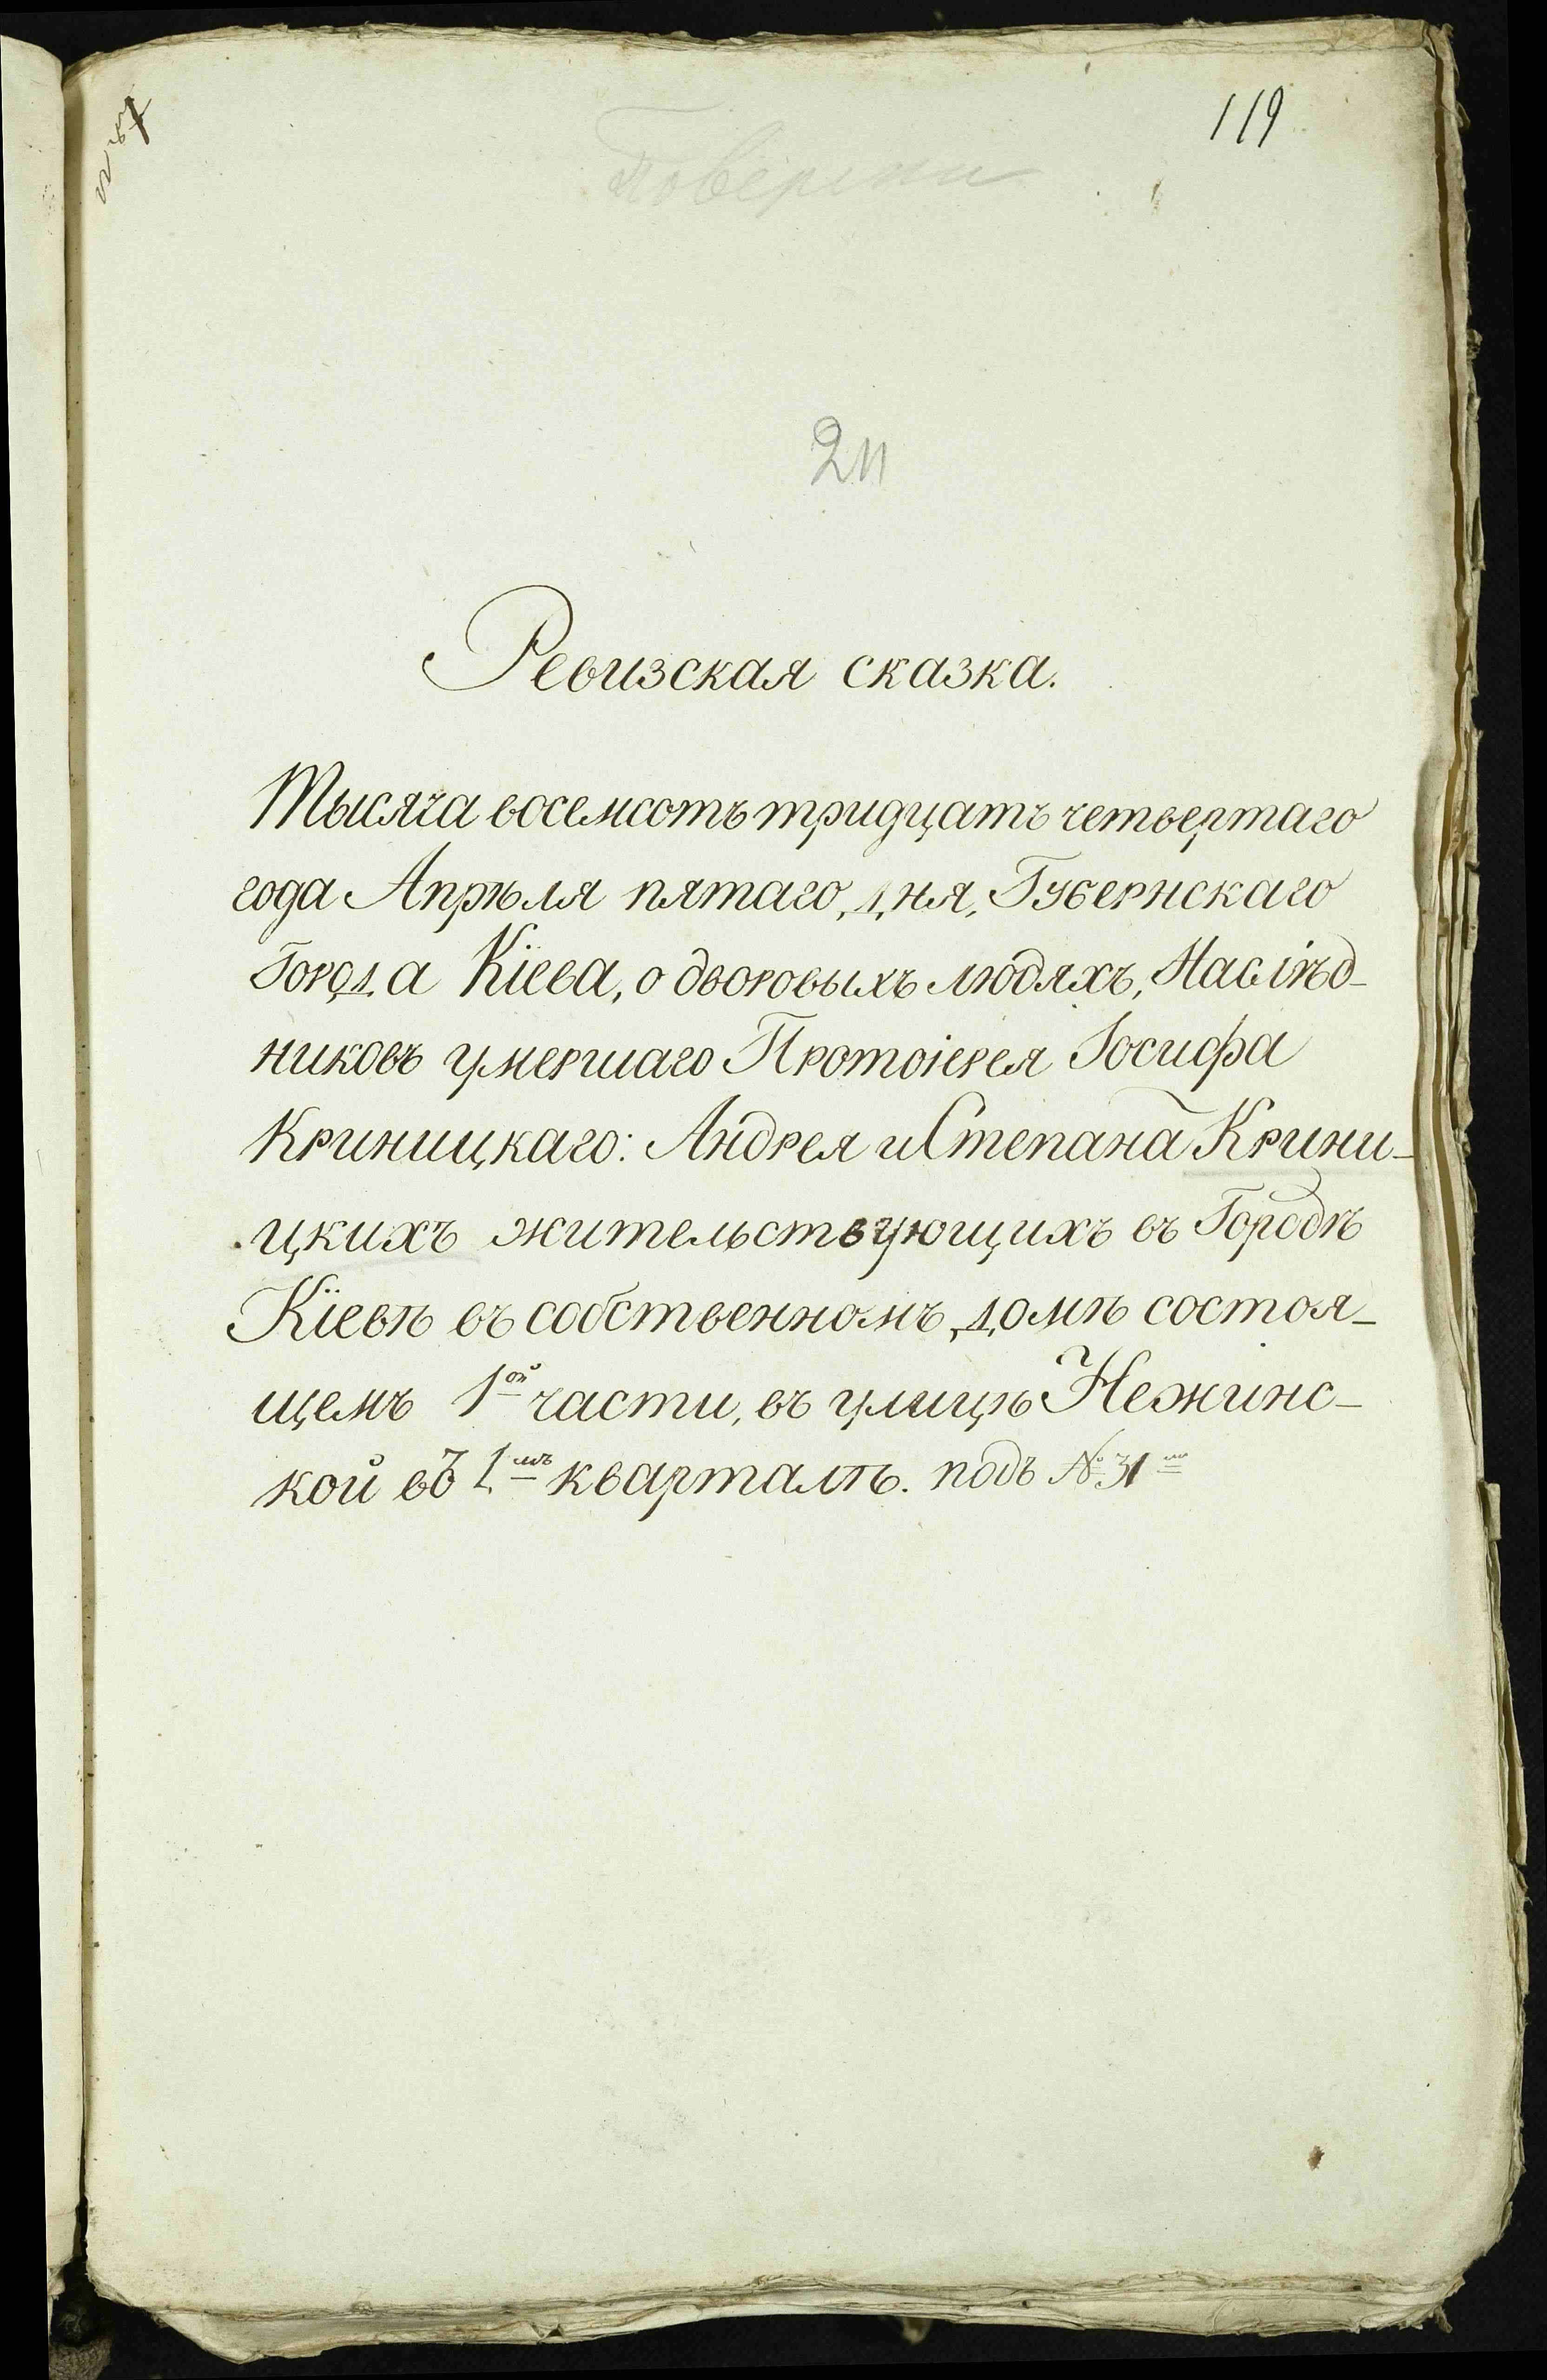 119
Поверени
2п
Ревизская сказка.
Тысяча восемсотъ тридцать четвертаго
года Апрѣля пятаго, дня, Губернскаго
Города Кіева, о дворовыхъ людяхъ, Наслѣд-
никовъ умершаго Протоіерея Іосифа
Криницкаго: Андрея и Степана Крини-
цкихъ жительствующихъ въ Городѣ
Кіевѣ въ собственномъ домѣ состоя-
щемъ 1ой части, въ улицѣ Нежинс-
кой въ 1мъ кварталѣ. подъ № 31мъ